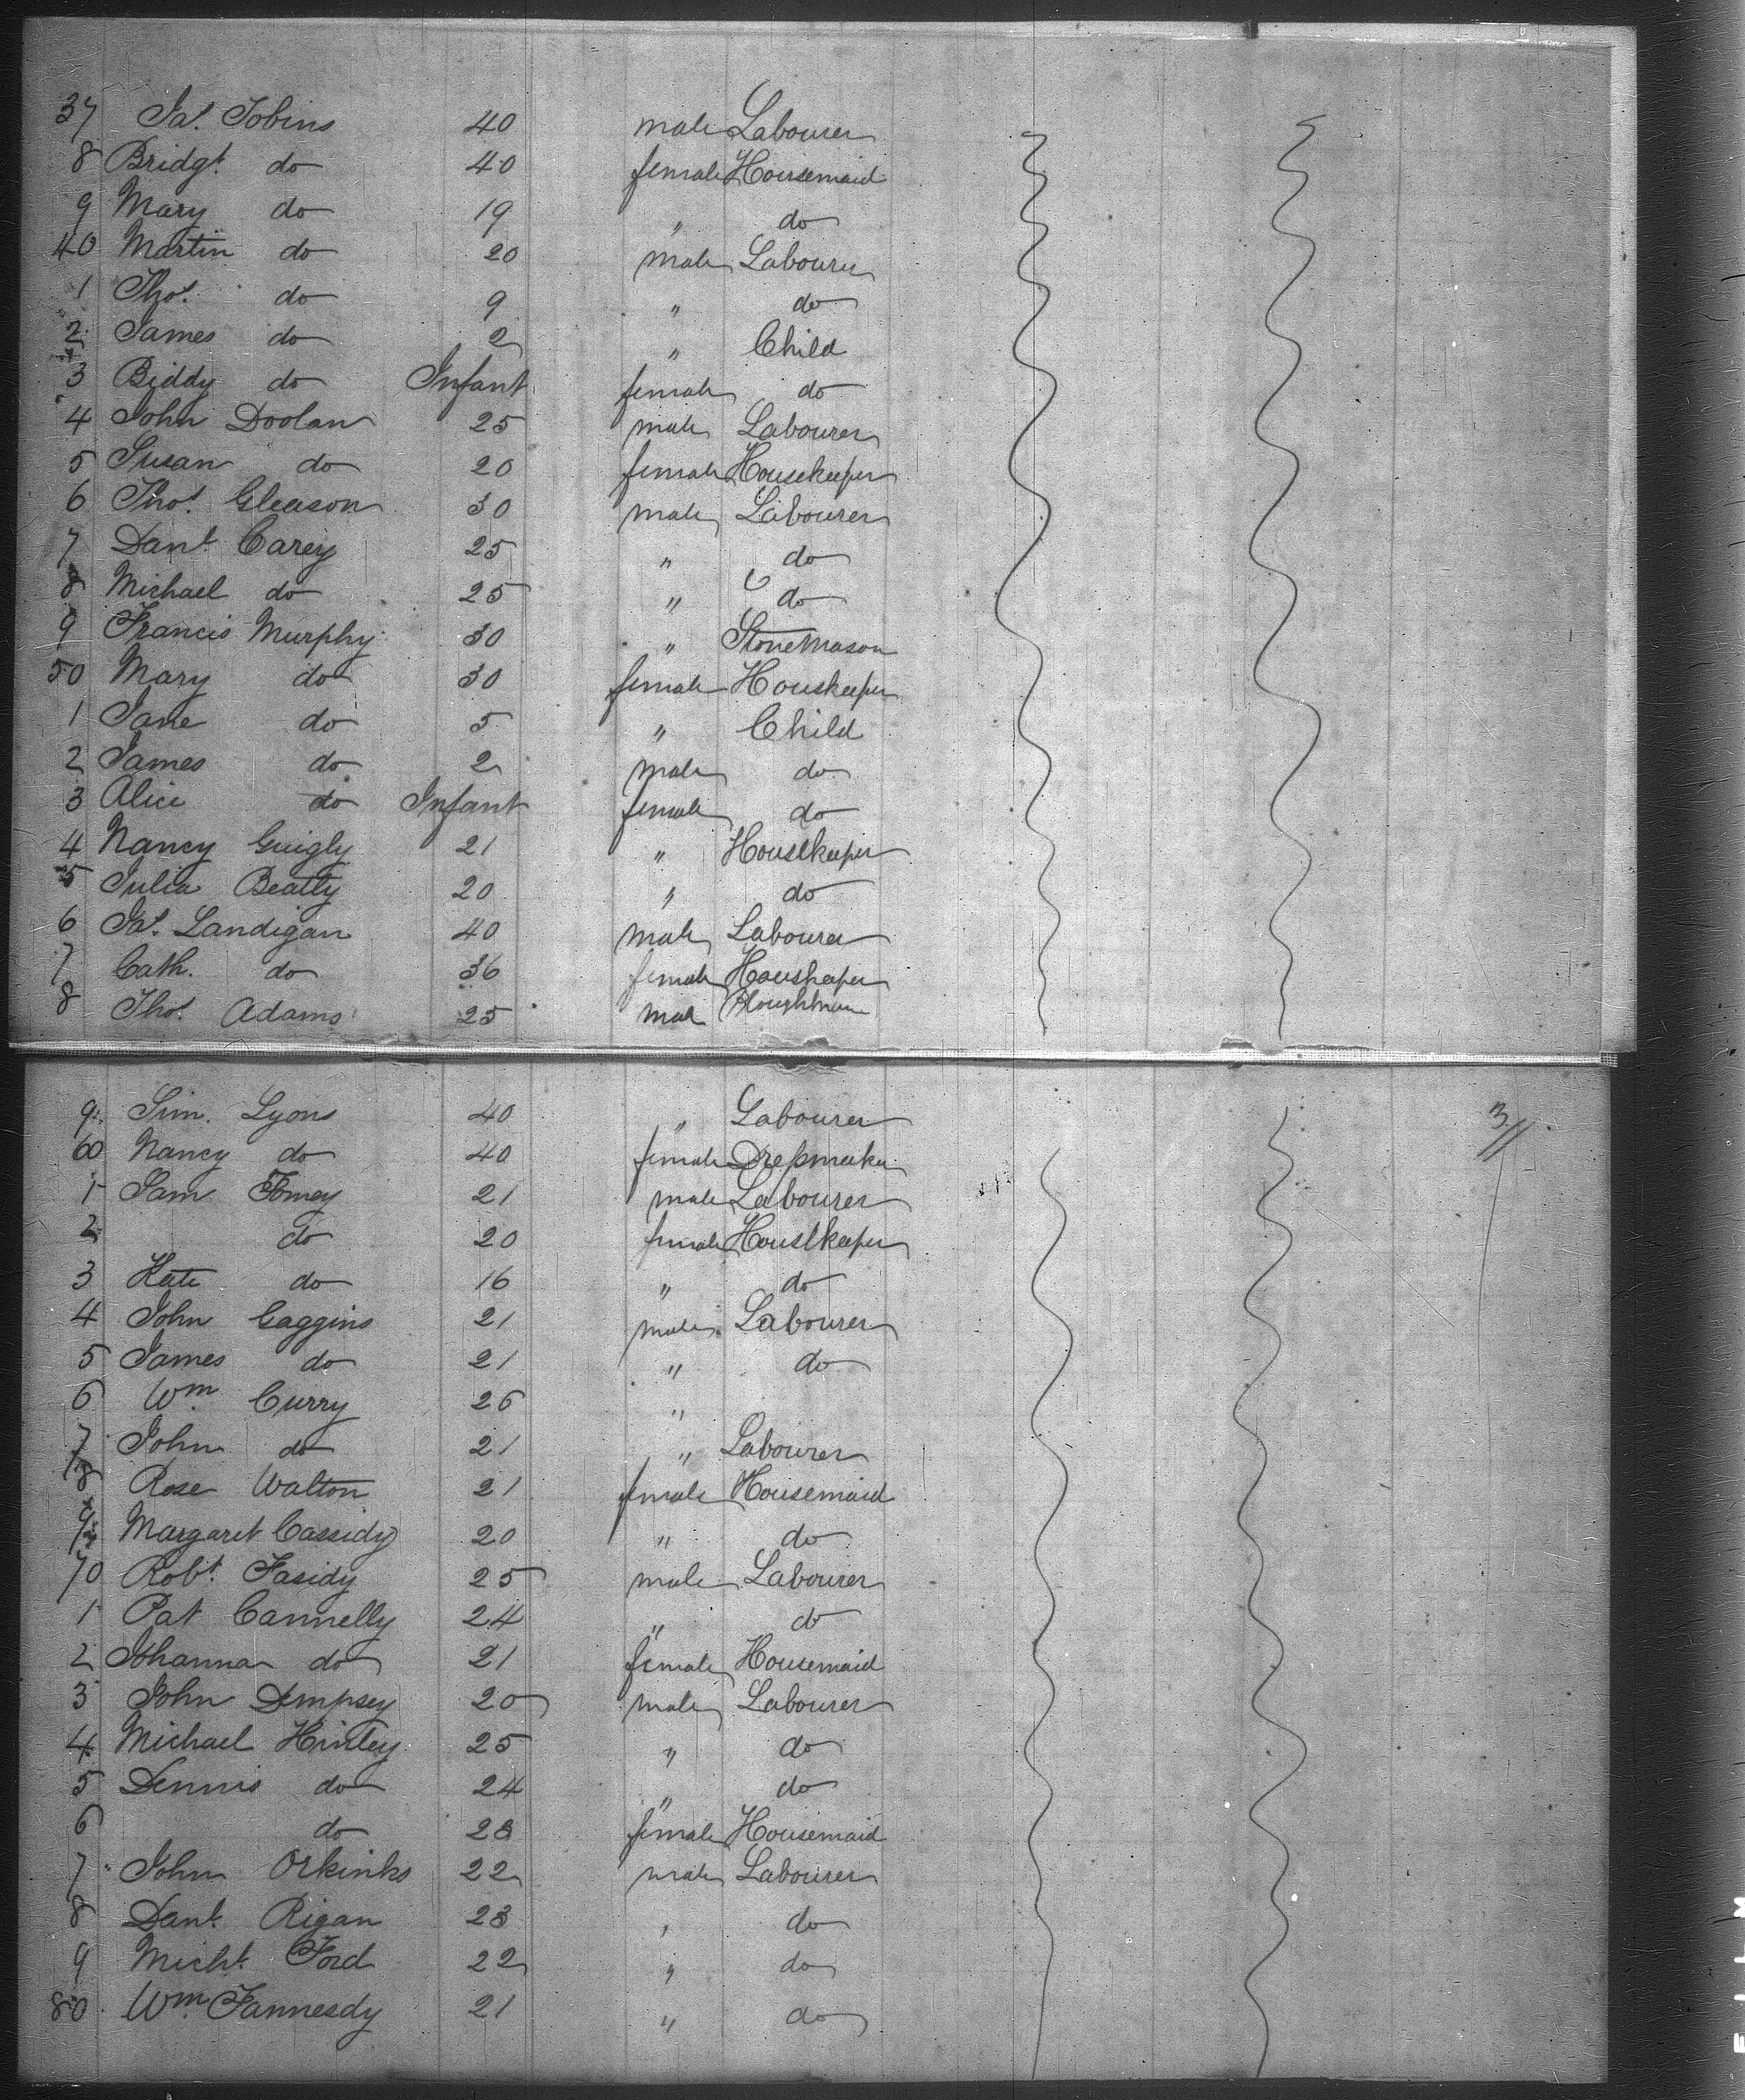 37 Jas. Tobins 40 male Labourer
8 Bridgt. do 40 female Housemaid
9 Mary do 19 " do
40 Martin do 20 male Labourer
1 Thos. do 9 " do
2 James do 2 " Child
3 Biddy do Infant female do
4 John Doolan 25 male Labourer
5 Susan do 20 female Housekeeper
6 Thos. Gleason 30 male Labourer
7 Danl. Carey 25 " do
8 Michael do 25 " do
9 Francis Murphy 30 " Stone Mason
50 Mary do 30 female Houskeeper
1 Jane do 5 " Child
2 James do 2 male do
3 Alice do Infant female do
4 Nancy Guigly 21 " Housekeeper
5 Julia Beatty 20 " do
6 Jas. Landigan 40 male Labourer
7 Cath. do 36 female
8 Thos. Adams 25 male Ploughman
9 Sim. Lyons 40 " Labourer
60 Nancy do 40 female Dressmaker
1 Sam 21 male Labourer
2 do 20 female Housekeeper
3 Kate do 16 " do
4 John Caggins 21 male Labourer
5 James do 21 " do
6 Wm. Curry 26 "
7 John do 21 " Labourer
8 Rose Walton 21 female Housemaid
9 Margaret Cassidy 20 " do
70 Robt. Fasidy 25 male Labourer
1 Pat Cannelly 24 " do
2 Johanna do 21 female Housemaid
3 John Dempsey 20 male Labourer
4 Michael Hinley 25 " do
5 Dennis do 24 " do
6 do 23 female Housemaid
7 John Orkinks 22 male Labourer
8 Danl. Rigan 23 " do
9 Michl. Ford 22 " do
80 Wm. Fannesdy 21 " do